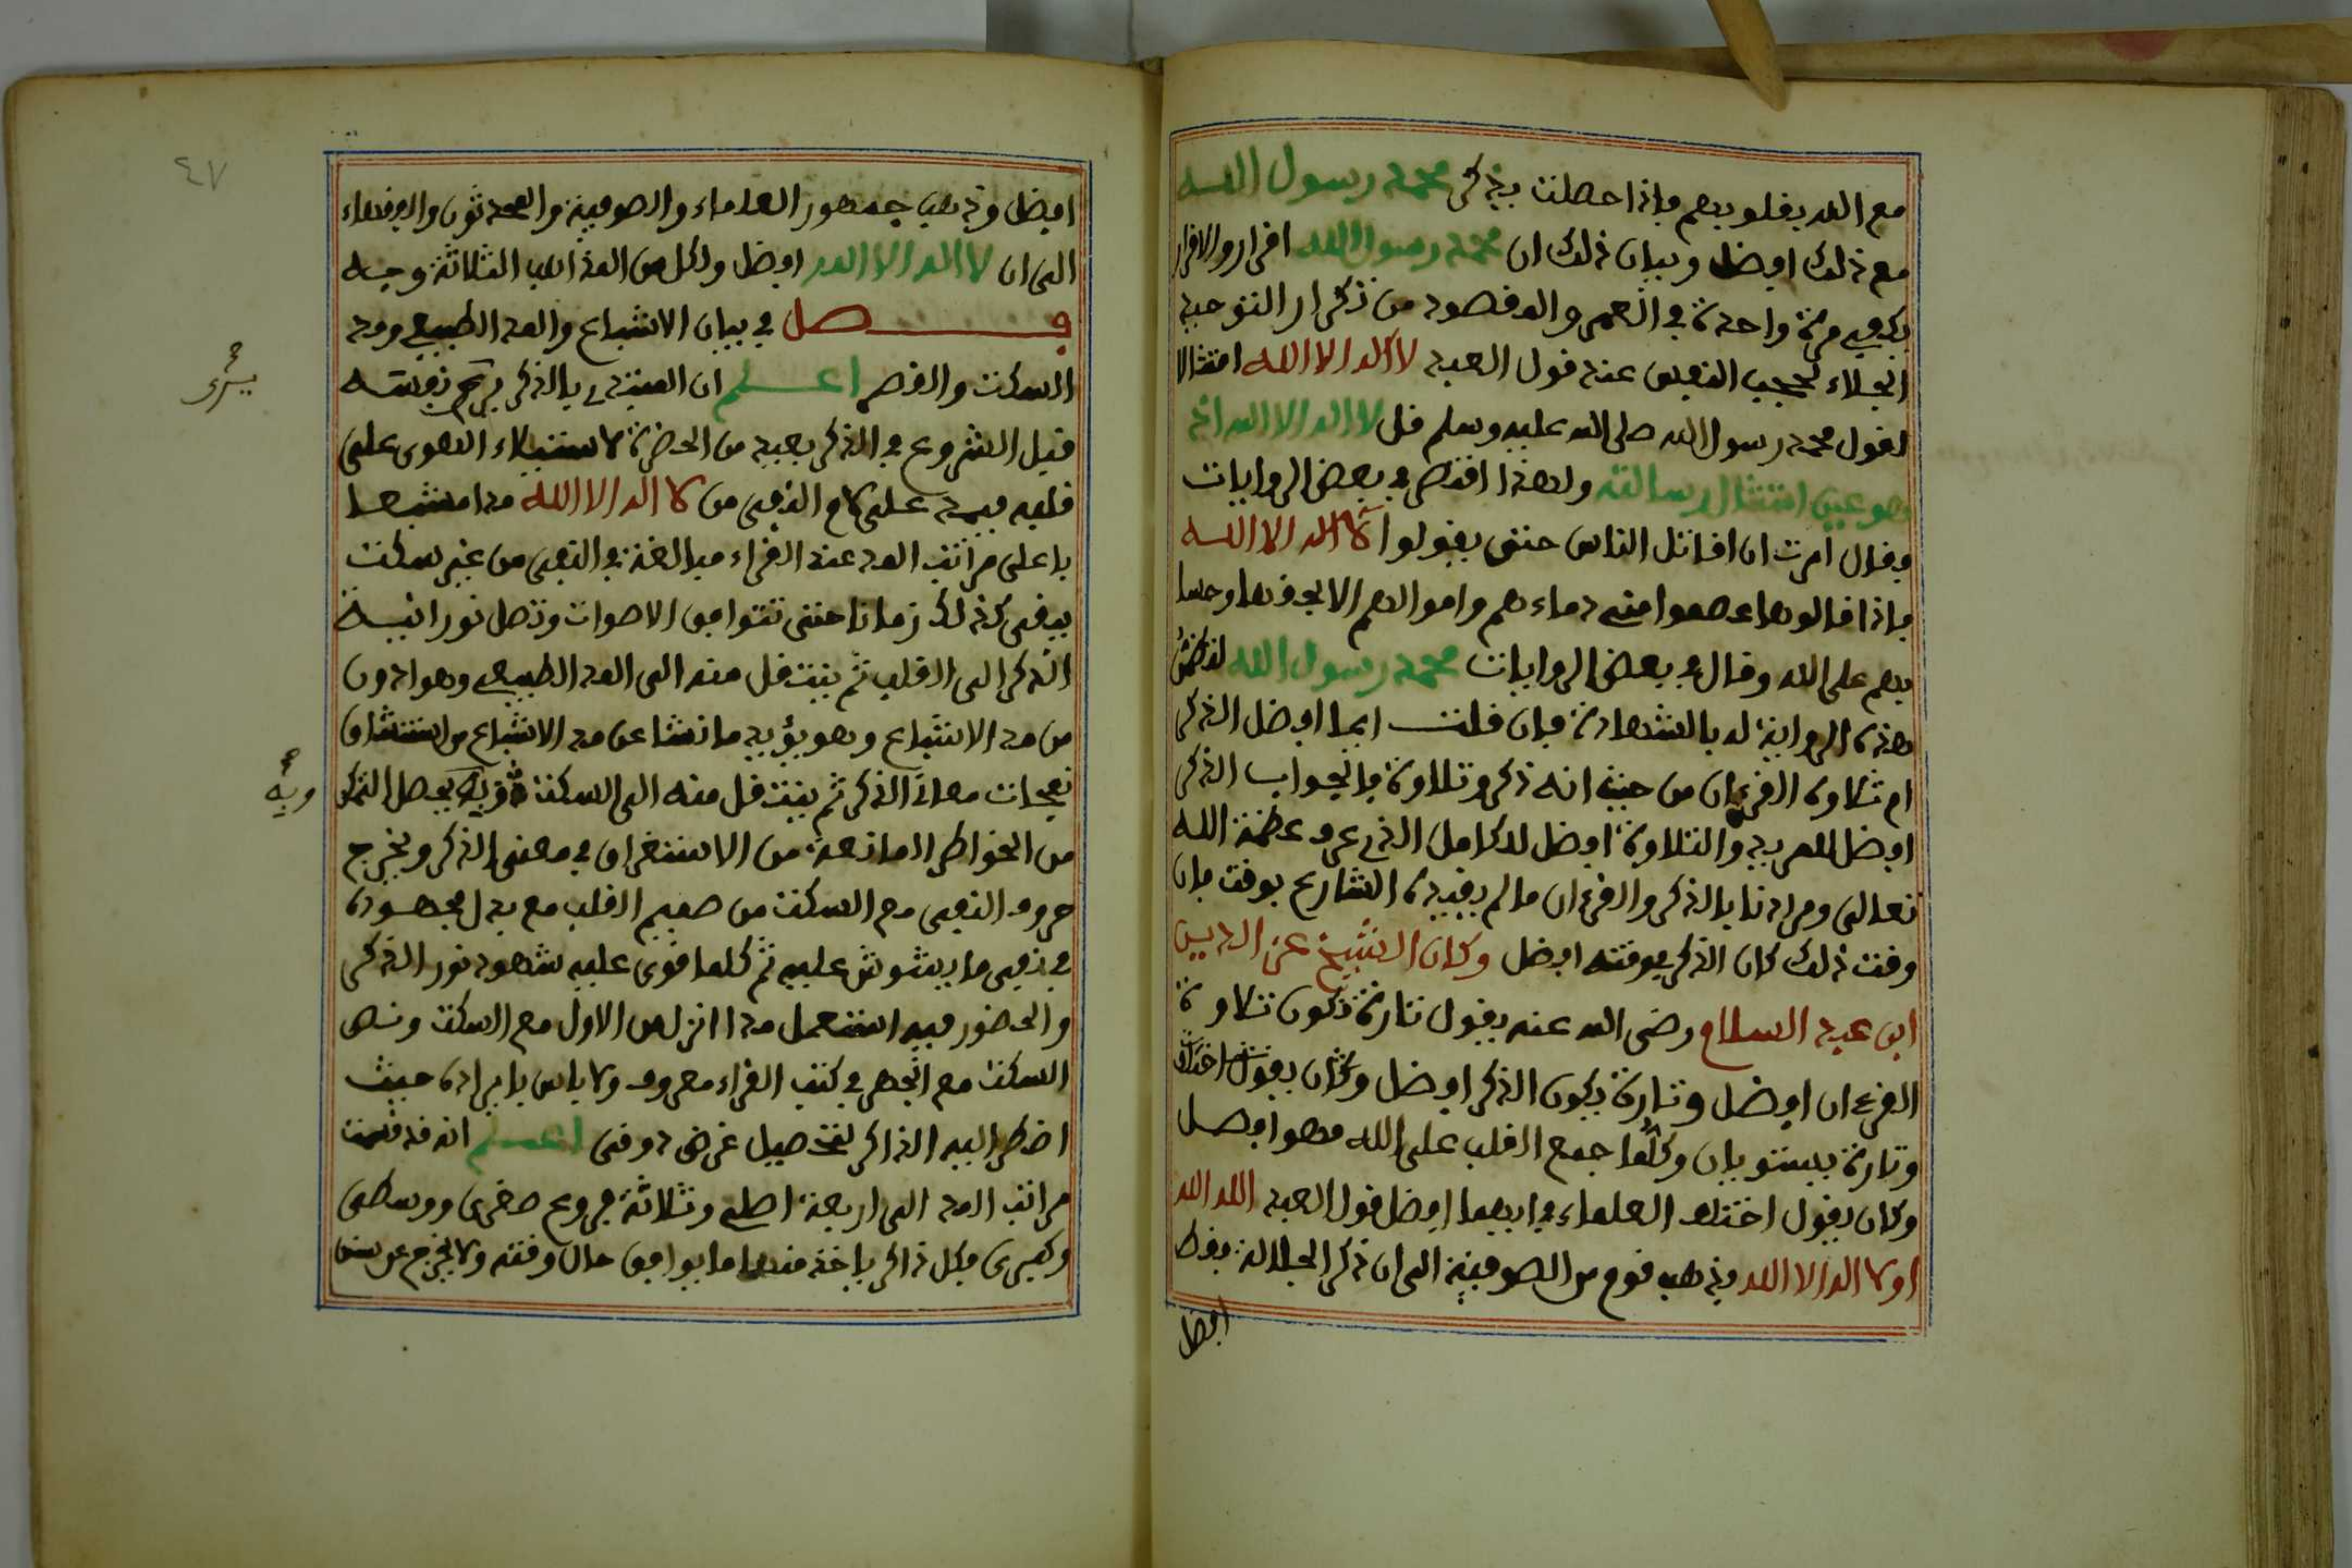 مع الله بقلوبهم فإذا حصلت بذكر محمد رسول الله
مع ذلك افضل وبيان ذلك ان محمد رسول الله اقرار والاقرار
يكفي مرة واحدة في العمر والمقصود من تكرار التوحيد
الجلاء لحجب النفس عند قول العبد لا اله الا الله امتثالا
لقول محمد رسول الله صلى الله عليه وسلم قل لا اله الا الله اذ
هو عين امتثال رسالته ولهذا اقتصر في بعض الروايات
وقال امرت ان اقاتل الناس حتى يقولوا لا اله الا الله
فاذا قالوها عصموا مني دماءهم واموالهم الا بحقها وحسا
بهم على الله وقال في بعض الروايات محمد رسول الله لتضمن
هذه الرواية له بالشهادة فان قلت ايما افضل الذكر
ام تلاوة القرءان من حيث انه ذكر وتلاوة فالجواب الذكر
افضل للمريد والتلاوة افضل للكامل الذي عرف عظمة الله
تعالى ومرادنا بالذكر والقرءان ما لم يقيده الشارع بوقت فان
وقت ذلك كان الذكر بوقته افضل وكان الشيخ عز الدين
ابن عبد السلام رضي الله عنه يقول تارة تكون تلاوة
القرءان افضل وتارة يكون الذكر افضل وكان يقول
وتارة يستويان وكلما جمع القلب على الله فهو افضل
وكان يقول اختلف العلماء في ايهما افضل قول العبد الله الله
او لا اله الا الله فذهب قوم من الصوفية الى ان ذكر الجلالة فقط
افضل
٤٧
افضل وذهب جمهور العلماء والصوفية والمحدثون والفقهاء
الى ان لا اله الا الله افضل ولكل من المذاهب الثلاثة وجه
فصل في بيان الاشباع والمد الطبيعي ومد
السكت والقصر اعلم ان المبتدي بالذكر يرى نفسه
يرى
قبل الشروع في الذكر بعيد من الحضرة لاستيلاء الهوى على
قلبه فيمد على لام النفي من لا اله الا الله مدا مشبعا
باعلى مراتب المد عند القراء مبالغة في النفي من غير سكت
يبقى كذلك زمانا حتى تتوافق الاصوات وتصل نورانية
الذكر الى القلب ثم ينتقل منه الى المد الطبيعي وهو ادون
من مد الاشباع وهو يؤيد ما نشا عن مد الاشباع من استنشاق
نفحات معان الذكر ثم ينتقل منه الى السكت وبه يحصل التمكن
وبه
من الخواطر المانعة من الاستغراق في معنى الذكر ويخرج
حروف النفي مع السكت من صميم القلب مع بذل مجهوده
في نفي ما يشوش عليه ثم كلما قوى عليه شهود نور الذكر
والحضور فيه استعمل مدا انزل من الاول مع السكت ونص
السكت مع الجهر في كتب القراء معروف ولا باس بايراده حيث
اضطر اليه الذاكر لتحصيل غرض دوقي اعلم انه قد قسمت
مراتب المد الى اربعة اصلي وثلاثة فروع صغرى ووسطى
وكبرى فكل ذاكر ياخذ منها ما يوافق حال وقته ولا يخرج عن